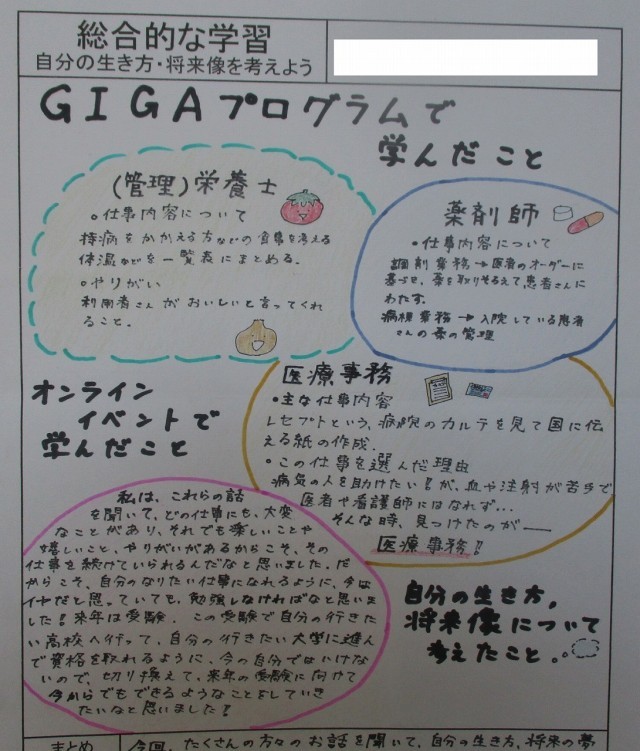 総合的な学習
自分の生き方・将来像を考えよう
GIGAプログラムで
学んだこと
(管理)栄養士
○仕事内容について
持病をかかえる方などの食事を考える
体温などを一覧表にまとめる。
○やりがい
利用者さんがおいしいと言ってくれ
ること。
薬剤師
・仕事内容について
調剤業務→医者のオーダーに
基づき、薬を取りそろえて患者さんに
わたす。
病棟業務→入院している患者
さんの薬の管理
オンライン
イベントで
学んだこと
医療事務
・主な仕事内容
レセプトという、病院のカルテを見て国に伝
える紙の作成.
・この仕事を選んだ理由
病気の人を助けたい!が、血や注射が苦手で
医者や看護師にはなれず...
そんな時、見つけたのが──
医療事務!!
私は、これらの話
を聞いて、どの仕事にも、大変
なことがあり、それでも楽しいことや
嬉しいこと、やりがいがあるからこそ、その
仕事を続けていられるんだなと思いました。だ
からこそ、自分のなりたい仕事になれるように、今は
イヤだと思っていても、勉強しなければなと思いま
した!来年は受験。この受験で自分の行きた
い高校へ行って、自分の行きたい大学に進ん
で資格を取れるように、今の自分ではいけな
いので、切り換えて、来年の受験に向けて
今からでもできるようなことをしていき
たいなと思いました!
自分の生き方,
将来像について
考えたこと。。
まとめ
今回、たくさんの方々のお話を聞いて、自分の生き方、将来の夢